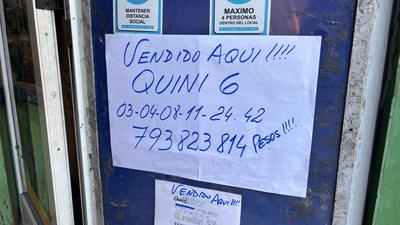 MANTENER
DISTANCIA
SOCIAL
MAXIMO
4 PERSONAS
DENTRO DEL LOCAL
VENDIDO AQUI!!!!
QUINI 6
03-04-08-11-24.42
793823814 PESOS!!!!
VENDIDO AQUI!!!